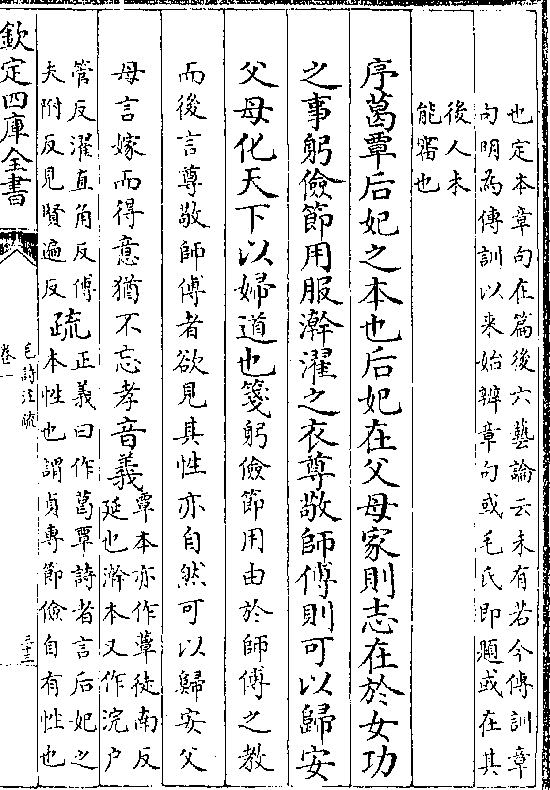 也定本章句在篇後六藝論云未有若今傳訓章
句明為傳訓以来始辨章句或毛氏即題或在其
後人未
能審也
序葛覃后妃之本也后妃在父母家則志在於女功
之事躬儉節用服澣濯之衣尊敬師傅則可以歸安
父母化天下以婦道也箋躬儉節用由於師傅之教
而後言尊敬師傅者欲見其性亦自然可以歸安父
母言嫁而得意猶不忘孝音義
覃本亦作蕈徒南反
延也澣本又作浣户
管反濯直角反傅
夫附反見賢遍反
疏
正義曰作葛覃詩者言后妃之
本性也謂貞專節儉自有性也
欽定四庫全書
毛詩注疏
卷一
三十三